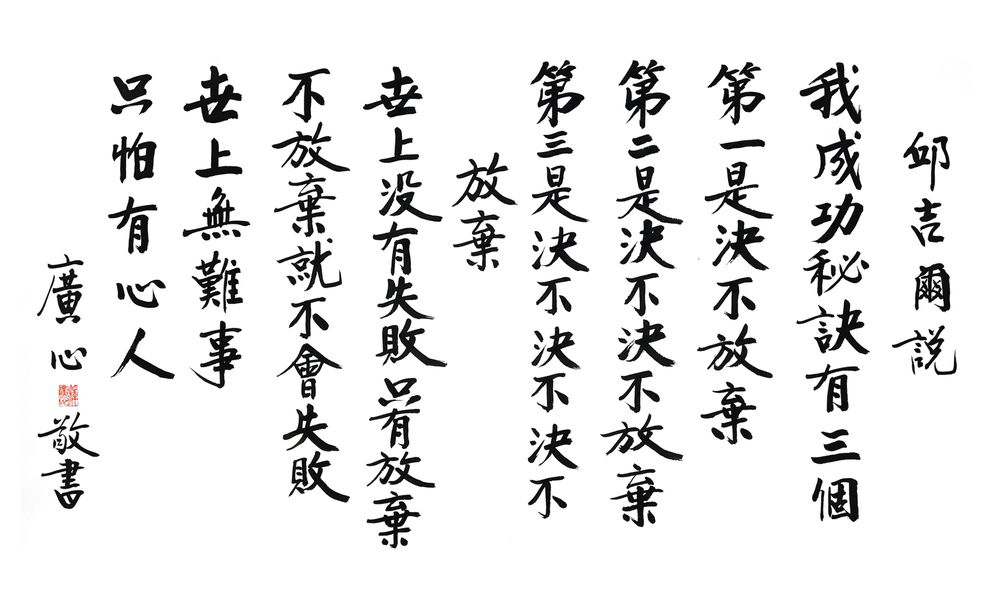 邱吉爾説
我成功秘訣有三個
第一是決不放棄
第二是決不決不放棄
第三是決不決不決不
放棄
世上没有失敗只有放棄
不放棄就不會失敗
世上無難事
只怕有心人
廣心敬書